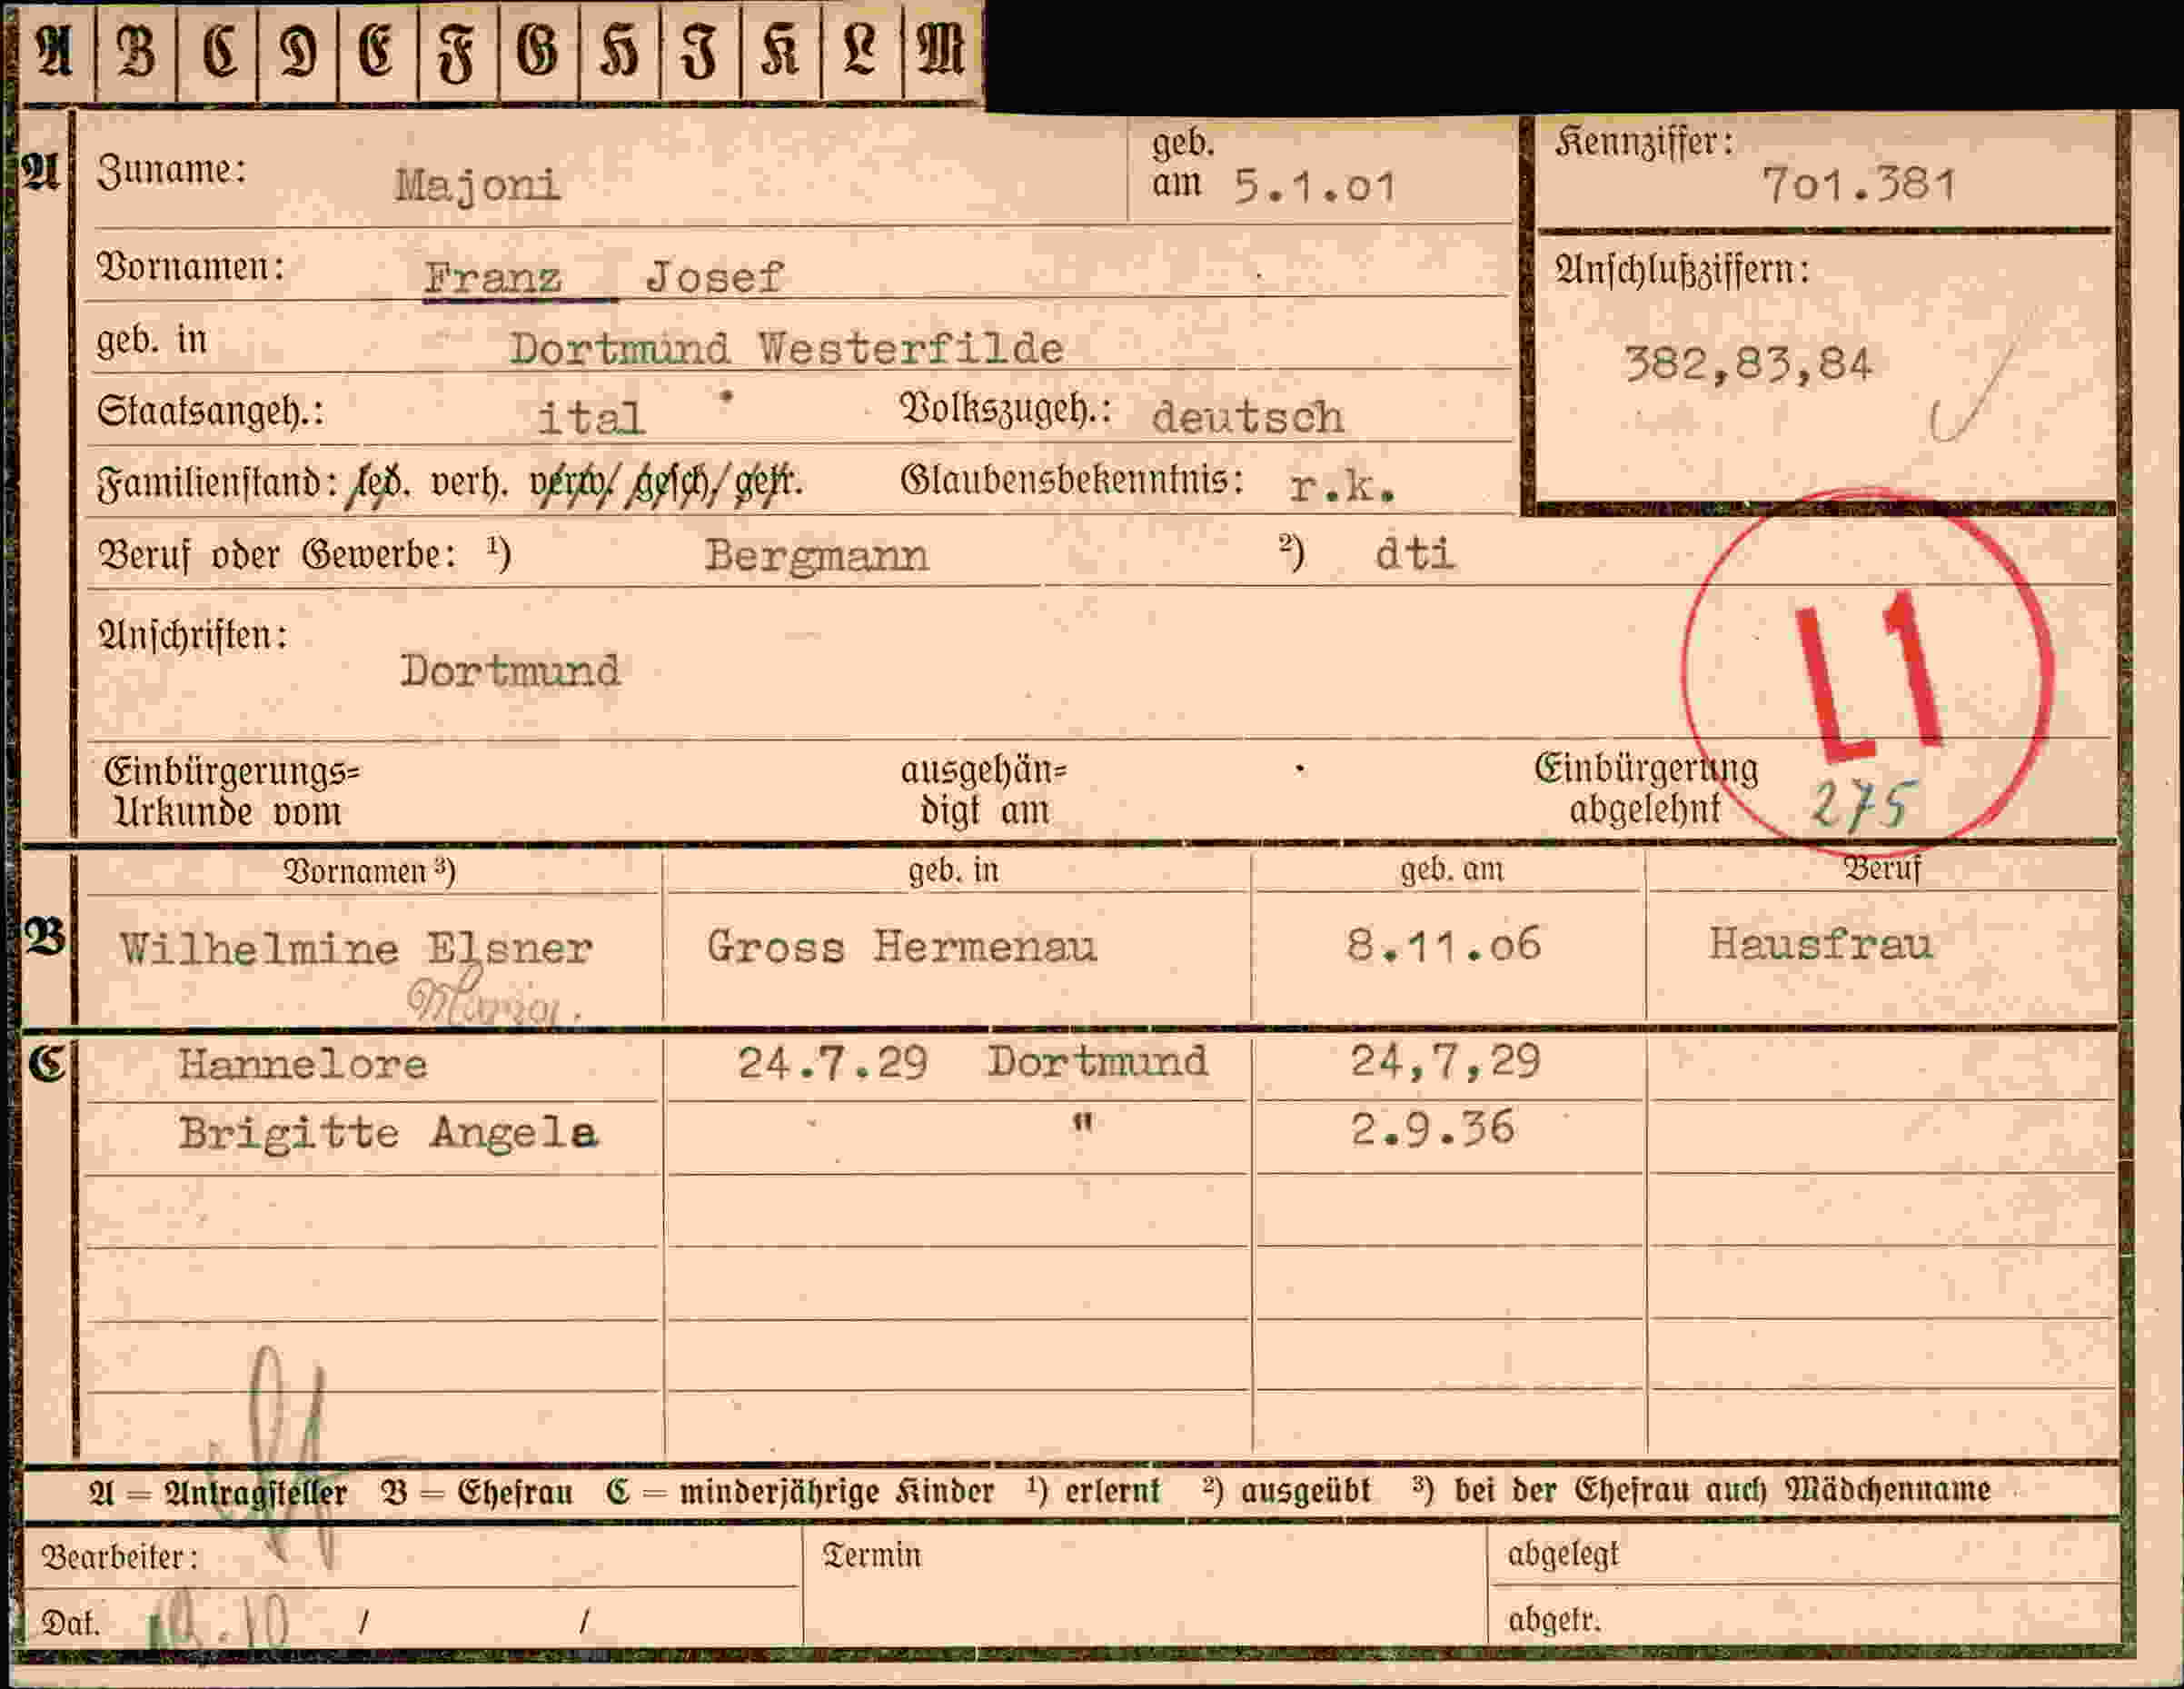 A B C D E F G H I K L M
A Zuname: Majoni geb. am 5.1.01 Kennziffer: 701.381
Vornamen: Franz Josef Anschlußziffern:
geb. in Dortmund Westerfilde 382,83,84
Staatsangeh.: ital Volkszugeh.: deutsch
Familienstand: led. verh. verw. gesch. getr. Glaubensbekenntnis: r.k.
Beruf oder Gewerbe: ¹) Bergmann ²) dti
Anschriften:
Dortmund
L1
Einbürgerungs= ausgehän= Einbürgerung
Urkunde vom digt am abgelehnt 275
Vornamen ³) geb. in geb. am Beruf
B Wilhelmine Elsner Gross Hermenau 8.11.06 Hausfrau
Maria.
C Hannelore 24.7.29 Dortmund 24,7,29
Brigitte Angela " 2.9.36
A = Antragsteller B = Ehefrau C = minderjährige Kinder ¹) erlernt ²) ausgeübt ³) bei der Ehefrau auch Mädchenname
Bearbeiter: Termin abgelegt
Dat. 19.10 / / abgetr.